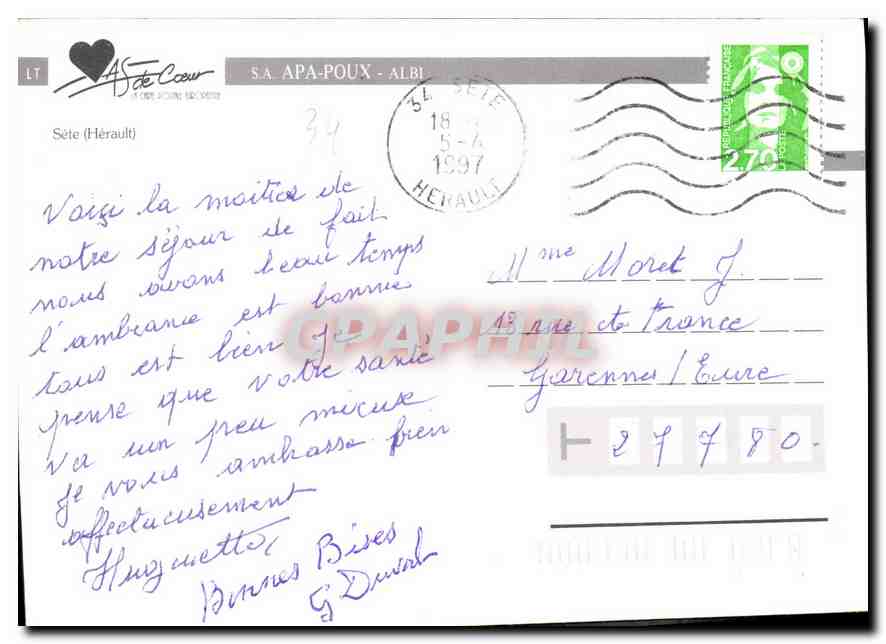 LT
AS de Cœur
LA CARTE POSTALE EUROPEENNE
S.A. APA-POUX - ALBI
Sète (Hérault)
34
34 SETE
18
5-4
1997
HERAULT
REPUBLIQUE FRANÇAISE
2,70
LA POSTE
Voiçi la moitier de
notre séjour de fait
nous avons beau temps
l'ambiance est bonne
tous est bien je
pense que votre santé
va un peu mieux
je vous embrasse bien
affectueusement
Huguette
Bonnes Bises
G Duval
Mme Moret J.
18 rue de France
Garennes / Eure
27780.
CPAPHIL